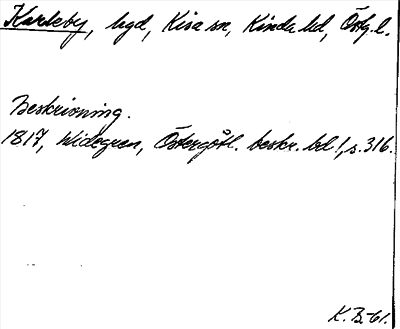 Karleby, byd, Kisa sn, Kinda hd, Östg. l.
Beskrivning.
1817, Widegren, Östergötl. beskr. bd 1, s. 316.
K. B.-61.